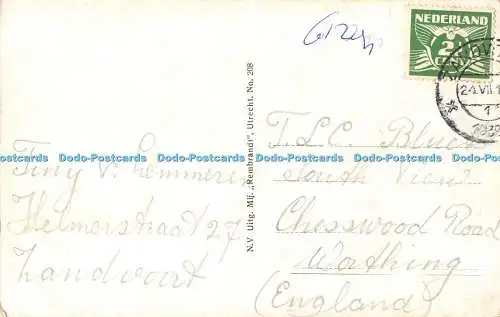 NEDERLAND
2½
CENT
24.VII.1
1939
Tiny v. Lemmeren
Helmerstraat 27
Zandvoort
N.V. Uitg. Mij. „Rembrandt", Utrecht. No. 208
T.L.C. Bluen
South View
Chesswood Road
Worthing
(England)
Dodo-Postcards Dodo-Postcards Dodo-Postcards Dodo-Postcards Dodo-Postcards